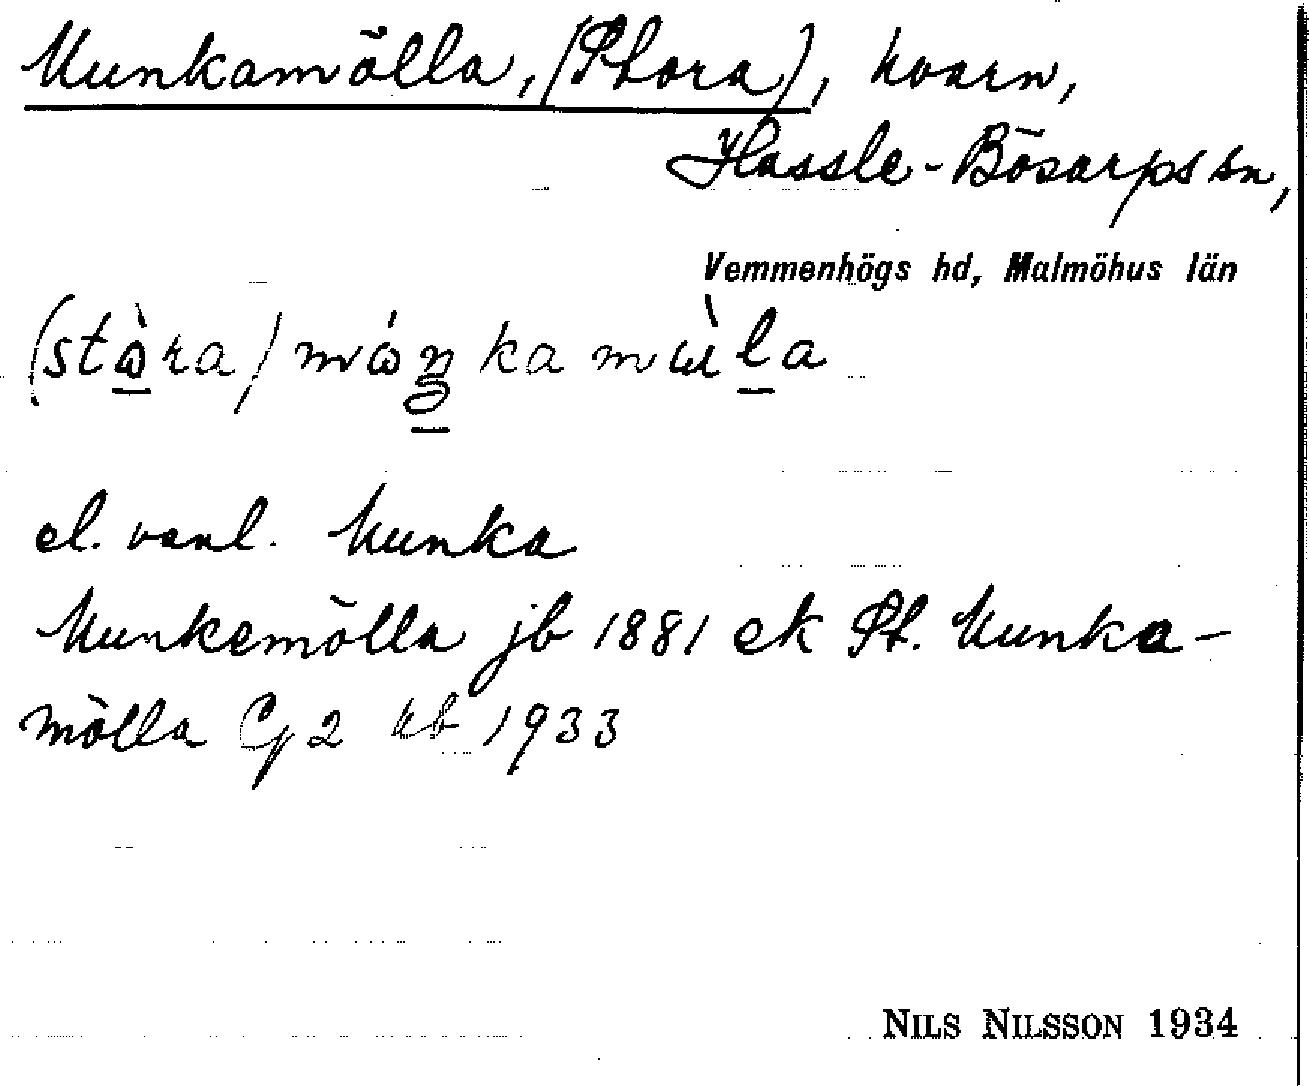 Munkamölla, (Stora), kvarn,
Hassle-Bösarps sn,
Vemmenhögs hd, Malmöhus län
(stὼra) mώŋkamɯ̀la
el. vanl. Munka
Munkemölla jb 1881 ek St. Munka-
mölla Cg 2 kb 1933
NILS NILSSON 1934